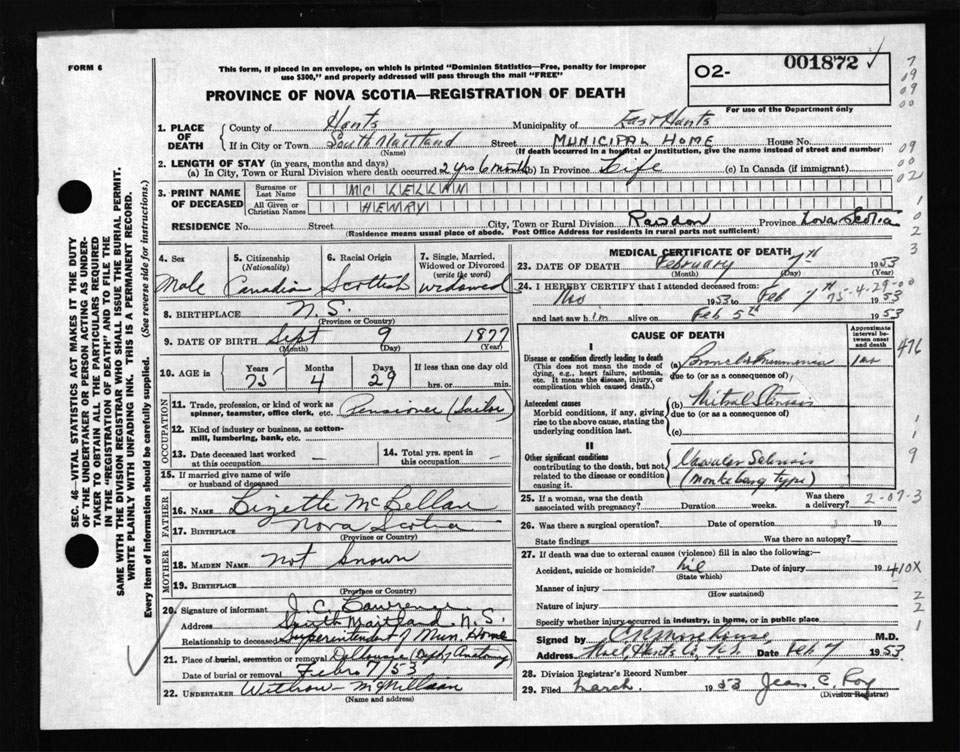 FORM 6
This form, if placed in an envelope, on which is printed "Dominion Statistics—Free, penalty for improper
use $300," and properly addressed will pass through the mail "FREE"
O2- 001872
For use of the Department only
PROVINCE OF NOVA SCOTIA—REGISTRATION OF DEATH
1. PLACE OF DEATH
County of Hants Municipality of East Hants
If in City or Town South Maitland Street MUNICIPAL HOME House No.
(Name) (If death occurred in a hospital or institution, give the name instead of street and number)
2. LENGTH OF STAY (in years, months and days)
(a) In City, Town or Rural Division where death occurred 2 yrs 6 month (b) In Province Life (c) In Canada (if immigrant)
3. PRINT NAME OF DECEASED
Surname or Last Name MC LELLAN
All Given or Christian Names HENRY
RESIDENCE No. Street City, Town or Rural Division Rawdon Province Nova Scotia
(Residence means usual place of abode. Post Office Address for residents in rural parts not sufficient)
4. Sex Male
5. Citizenship (Nationality) Canadian
6. Racial Origin Scottish
7. Single, Married, Widowed or Divorced (write the word) widowed
8. BIRTHPLACE N.S.
(Province or Country)
9. DATE OF BIRTH Sept 9 1877
(Month) (Day) (Year)
10. AGE in Years 75 Months 4 Days 29 If less than one day old
hrs. or min.
OCCUPATION
11. Trade, profession, or kind of work as spinner, teamster, office clerk, etc. Pensioner (Sailor)
12. Kind of industry or business, as cotton-mill, lumbering, bank, etc.
13. Date deceased last worked at this occupation -
14. Total yrs. spent in this occupation -
15. If married give name of wife or husband of deceased
FATHER
16. Name Lizette McLellan
17. Birthplace Nova Scotia
(Province or Country)
MOTHER
18. MAIDEN NAME Not known
19. BIRTHPLACE
(Province or Country)
20. Signature of informant J. C. Lawrence
Address South Maitland N.S.
Relationship to deceased Superintendent of Mun. Home
21. Place of burial, cremation or removal Dalhousie (Dept of Anatomy)
Date of burial or removal Feb 7/53
22. UNDERTAKER Withrow McMillaan
(Name and address)
MEDICAL CERTIFICATE OF DEATH
23. DATE OF DEATH February 7th 1953
(Month) (Day) (Year)
24. I HEREBY CERTIFY that I attended deceased from:
1953 to Feb 7th 1953
75-4-29-00
and last saw him alive on Feb 5th 1953
CAUSE OF DEATH
Approximate interval between onset and death
I
Disease or condition directly leading to death
(This does not mean the mode of dying, e.g., heart failure, asthenia, etc. It means the disease, injury, or complication which caused death.)
(a) Broncho Pneumonia
due to (or as a consequence of)
Antecedent causes
Morbid conditions, if any, giving rise to the above cause, stating the underlying condition last.
(b) Mitral Stenosis
due to (or as a consequence of)
(c)
II
Other significant conditions
contributing to the death, but not related to the disease or condition causing it.
25. If a woman, was the death associated with pregnancy? Duration weeks. Was there a delivery?
2-07-3
26. Was there a surgical operation? Date of operation 19
State findings Was there an autopsy?
27. If death was due to external causes (violence) fill in also the following:—
Accident, suicide or homicide? nil Date of injury 19
(State which)
410X
Manner of injury
(How sustained)
Nature of injury
Specify whether injury occurred in industry, in home, or in public place
Signed by M.D.
Address Noel, Hants Co, N.S. Date Feb 7 1953
28. Division Registrar's Record Number
29. Filed March 1953 Jean C. Roy
(Division Registrar)
SEC. 46—VITAL STATISTICS ACT MAKES IT THE DUTY
OF THE UNDERTAKER OR PERSON ACTING AS UNDER-
TAKER TO OBTAIN ALL THE PARTICULARS REQUIRED
IN THE "REGISTRATION OF DEATH" AND TO FILE THE
SAME WITH THE DIVISION REGISTRAR WHO SHALL ISSUE THE BURIAL PERMIT.
WRITE PLAINLY WITH UNFADING INK. THIS IS A PERMANENT RECORD.
Every item of information should be carefully supplied. (See reverse side for instructions.)